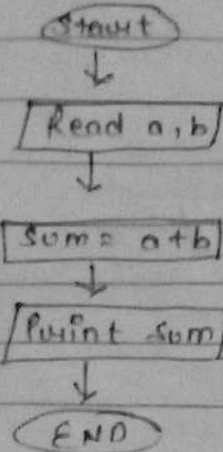 Start
Read a, b
Sum = a+b
Print Sum
END